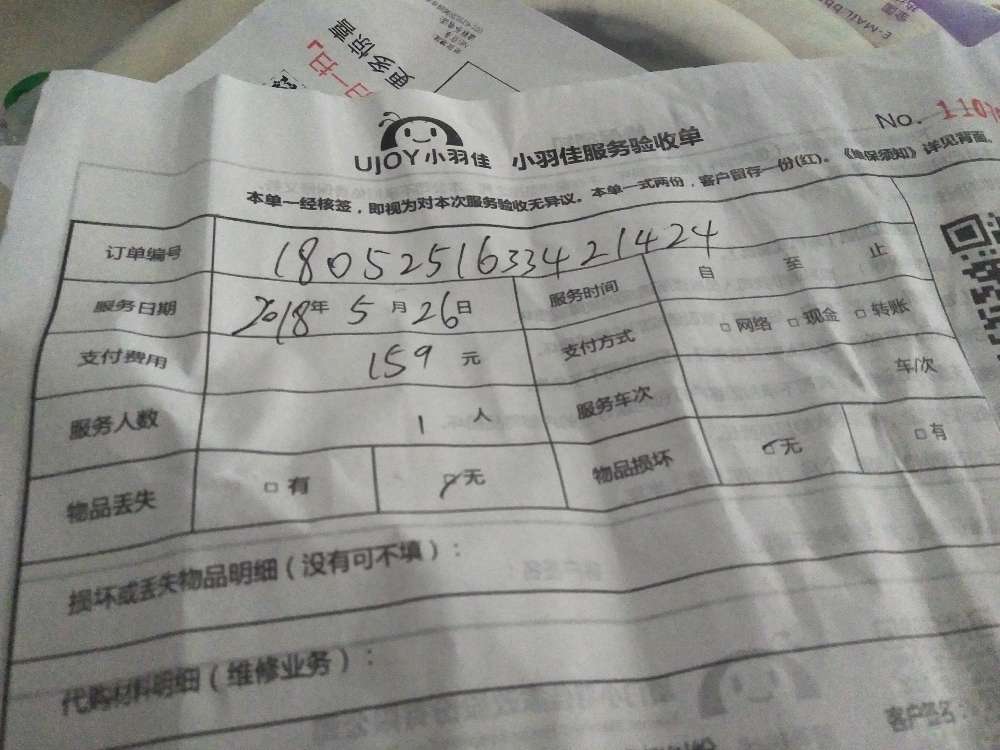 E-MAIL
更多惊喜
扫一扫」
No. 110
UJOY小羽佳 小羽佳服务验收单
本单一经核签，即视为对本次服务验收无异议。本单一式两份，客户留存一份(红)。《维保须知》详见背面。
订单编号 1805251633421424
服务日期 2018年 5月 26日 服务时间 自 至 止
支付费用 159 元 支付方式 □ 网络 □ 现金 □ 转账
服务人数 1 人 服务车次 车/次
物品丢失 □ 有 ☑ 无 物品损坏 ☑ 无 □ 有
损坏或丢失物品明细（没有可不填）：
代购材料明细（维修业务）：
客户签名：